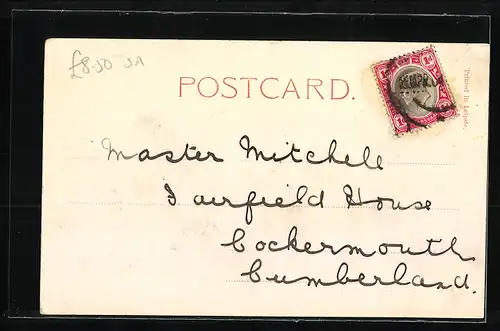 £8.50 SA
POSTCARD.
1d 1d
Printed in Leipzic.
Master Mitchell
Fairfield House
Cockermouth
Cumberland.